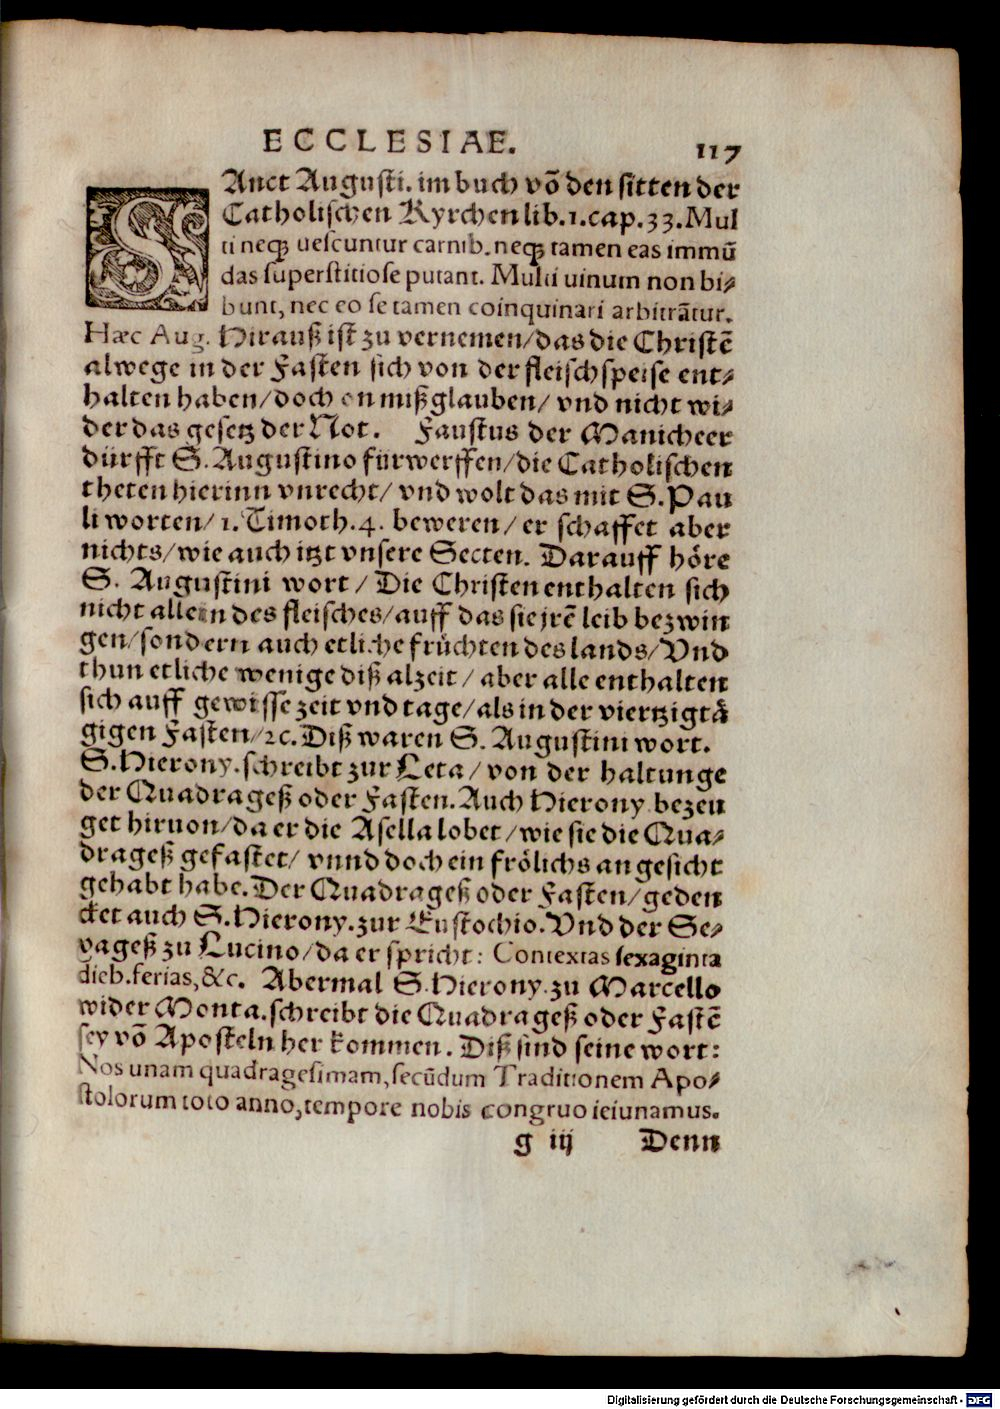 ECCLESIAE. 117
SAnct Augusti. im buch võ den sitten der
Catholischen Kyrchen lib.1.cap.33.Mul
ti neqꝫ uescuntur carnib.neqꝫ tamen eas immũ
das superstitiose putant. Multi uinum non bi⸗
bunt, nec eo se tamen coinquinari arbitrãtur.
Hæc Aug. Hirauß ist zu vernemen/das die Christẽ
alwege in der Fasten sich von der fleischspeise ent⸗
halten haben/doch on mißglauben/ vnd nicht wi⸗
der das gesetz der Not. Faustus der Manicheer
dürfft S.Augustino fürwerffen/die Catholischen
theten hierinn vnrecht/ vnd wolt das mit S.Pau
li worten/ 1.Timoth.4. beweren/ er schaffet aber
nichts/wie auch itzt vnsere Secten. Darauff höre
S. Augustini wort / Die Christen enthalten sich
nicht allein des fleisches/auff das sie jrẽ leib bezwin
gen/sondern auch etliche früchten des lands/Vnd
thun etliche wenige diß alzeit / aber alle enthalten
sich auff gewisse zeit vnd tage/als in der viertzigtä
gigen Fasten/ꝛc. Diß waren S. Augustini wort.
S.Hierony.schreibt zur Leta/ von der haltunge
der Quadrageß oder Fasten. Auch Hierony.bezeu
get hiruon/da er die Asella lobet/wie sie die Qua⸗
drageß gefastet/ vnnd doch ein frölichs angesicht
gehabt habe. Der Quadrageß oder Fasten/geden
cket auch S.Hierony.zur Eustochio.Vnd der Se⸗
xageß zu Lucino/da er spricht: Contextas sexaginta
dieb.ferias,&c. Abermal S.Hierony.zu Marcello
wider Monta.schreibt die Quadrageß oder Fastẽ
sey võ Aposteln her kommen. Diß sind seine wort:
Nos unam quadragesimam,secũdum Traditionem Apo⸗
stolorum toto anno,tempore nobis congruo ieiunamus.
g iij Denn
Digitalisierung gefördert durch die Deutsche Forschungsgemeinschaft - DFG